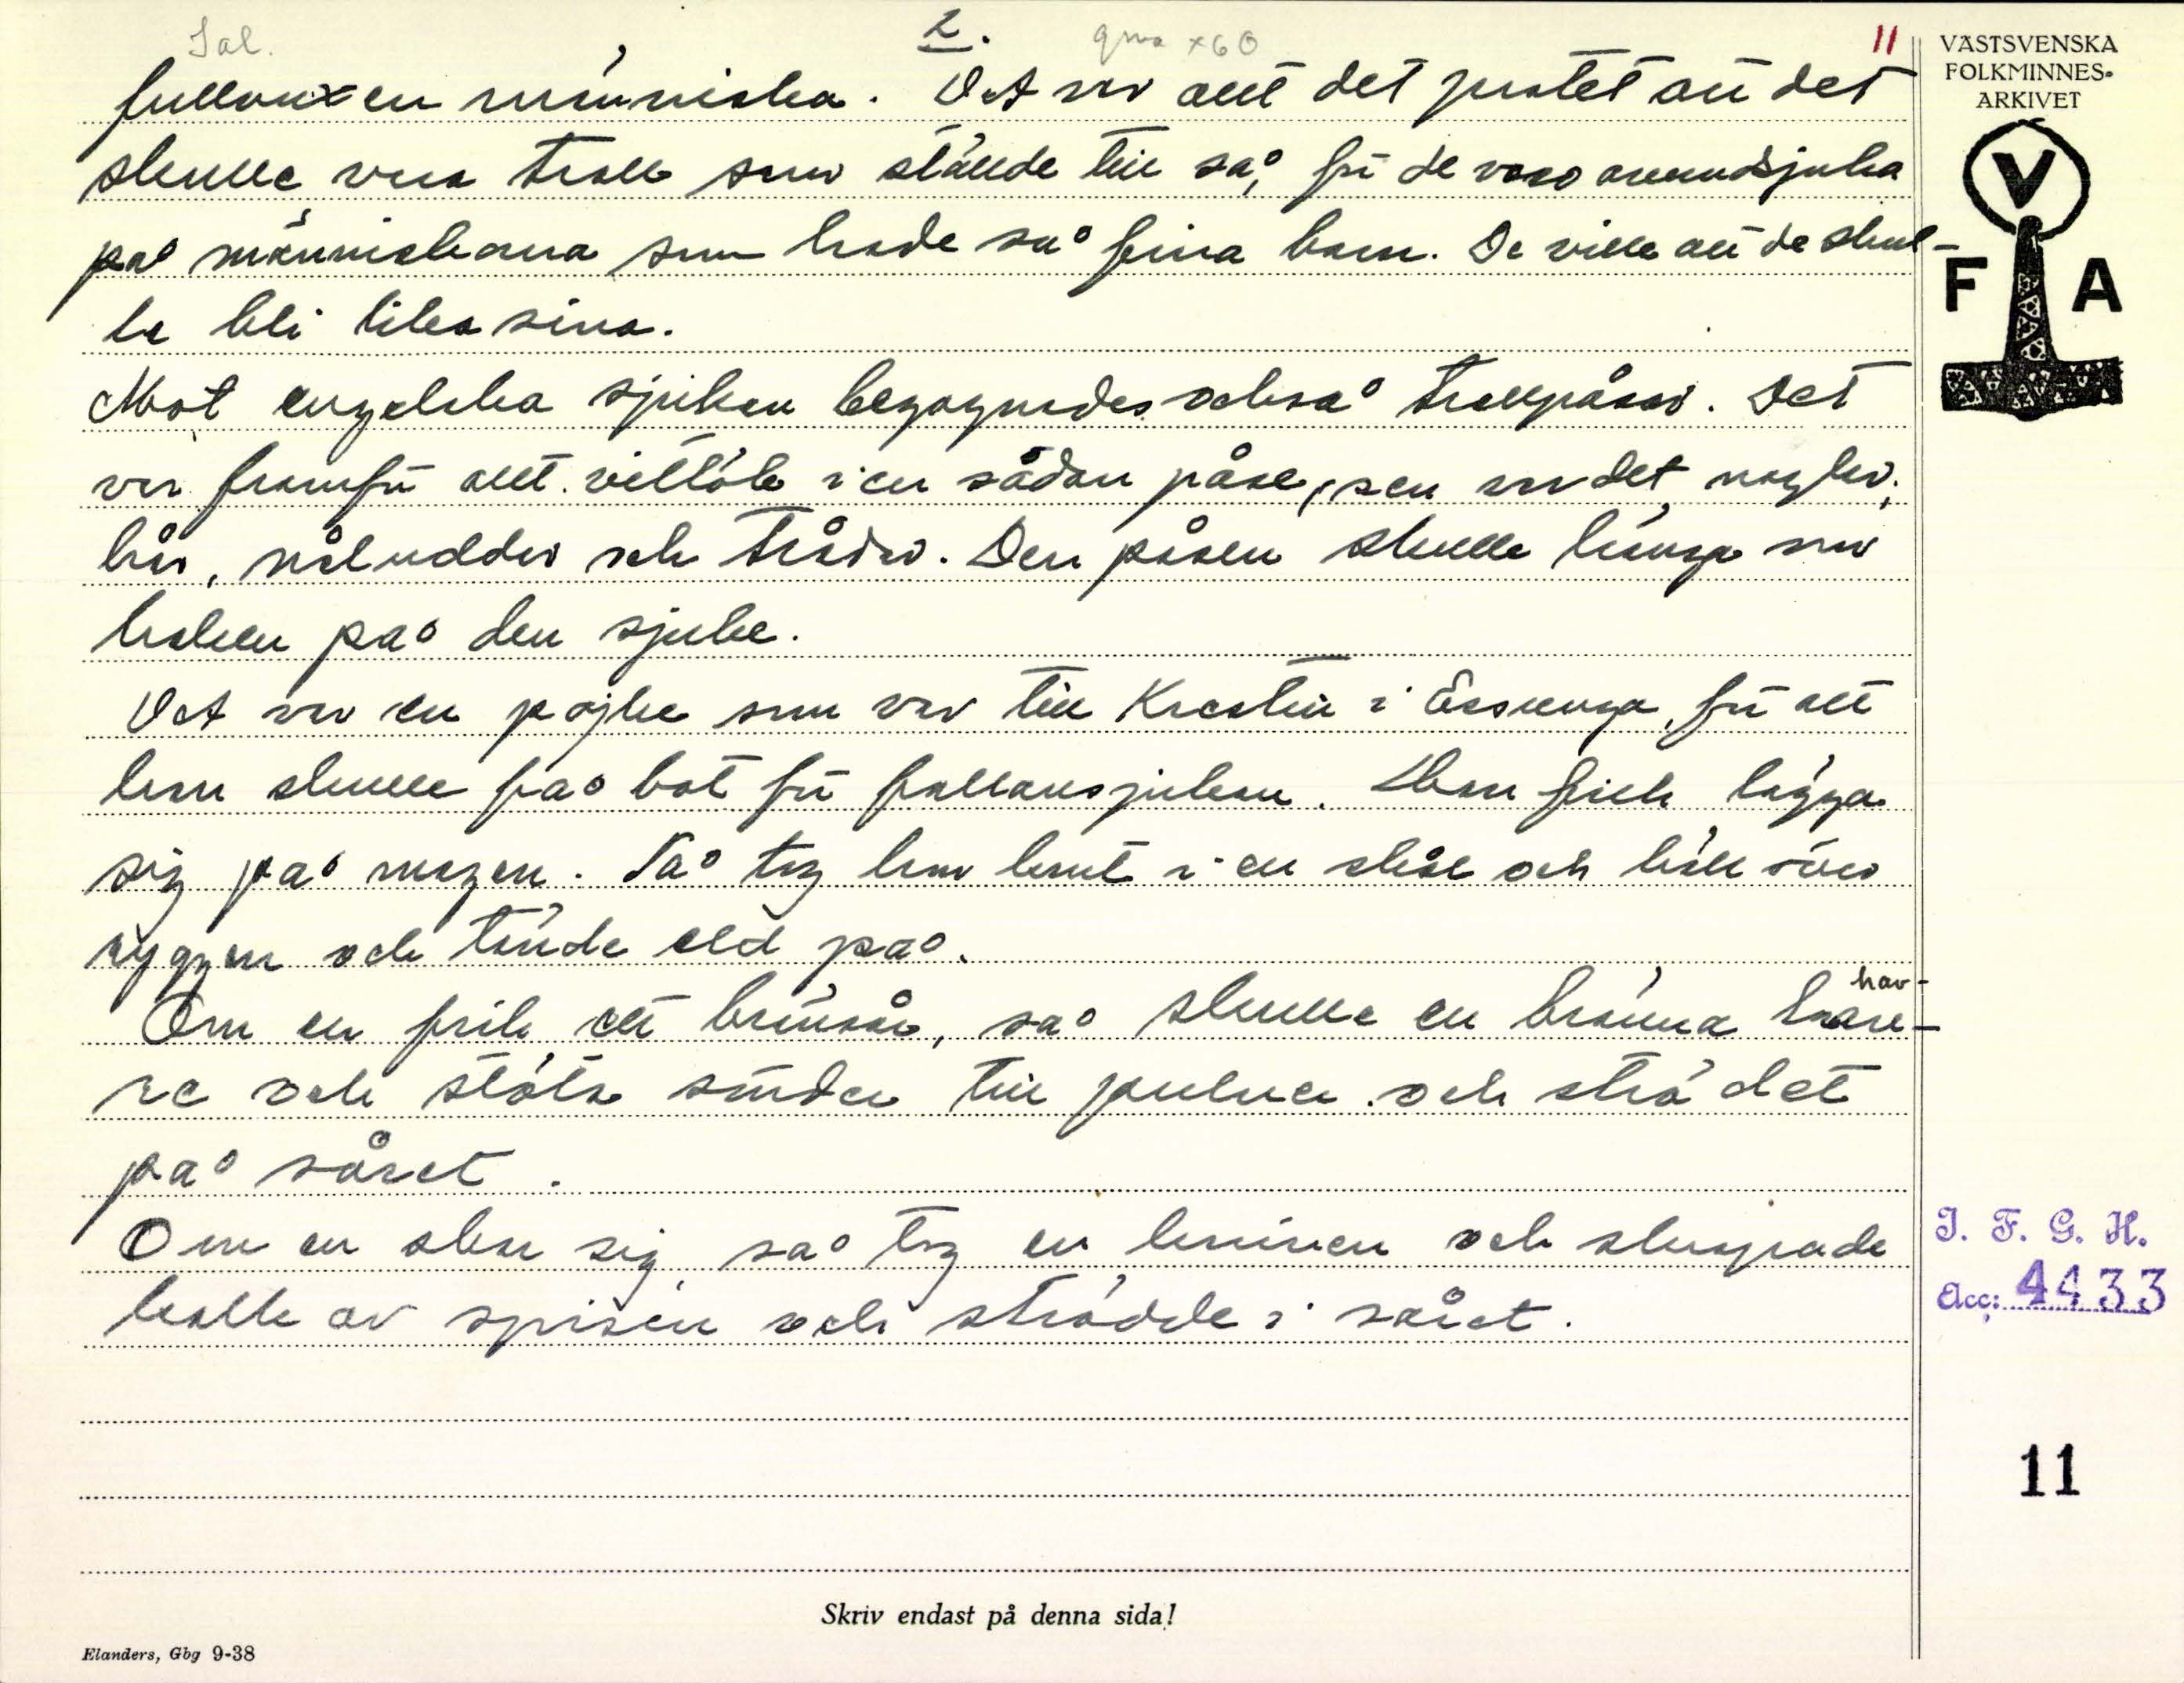 Sal.
2.
11
en människa. Det var allt det pratet att det
skulle vara troll som ställde till så, för de voro avundsjuka
på människorna som hade så fina barn. De ville att de skul-
le bli lika sina.
Mot engelska sjukan begagnades också trollpåsar. Det
var framför allt vitlök i en sådan påse, sen var det naglar,
hår, nåluddar och trådar. Den påsen skulle hänga om
halsen på den sjuke.
Det var en pojke som var till Krestin i Essunga, för att
han skulle få bot för fallansjukan. Han fick lägga
sig på magen. Så tog hon krut i en skål och höll över
ryggen och tände eld på.
Om en fick ett brännsår, så skulle en bränna hav-
re och stöta sönder till pulver och strö det
på såret.
Om en skar sig, så tog en kniven och skrapade
kalk av spisen och strödde i såret.
VÄSTSVENSKA
FOLKMINNES-
ARKIVET
V
F A
I. F. G. H.
Acc: 4433
11
Skriv endast på denna sida!
Elanders, Gbg 9-38